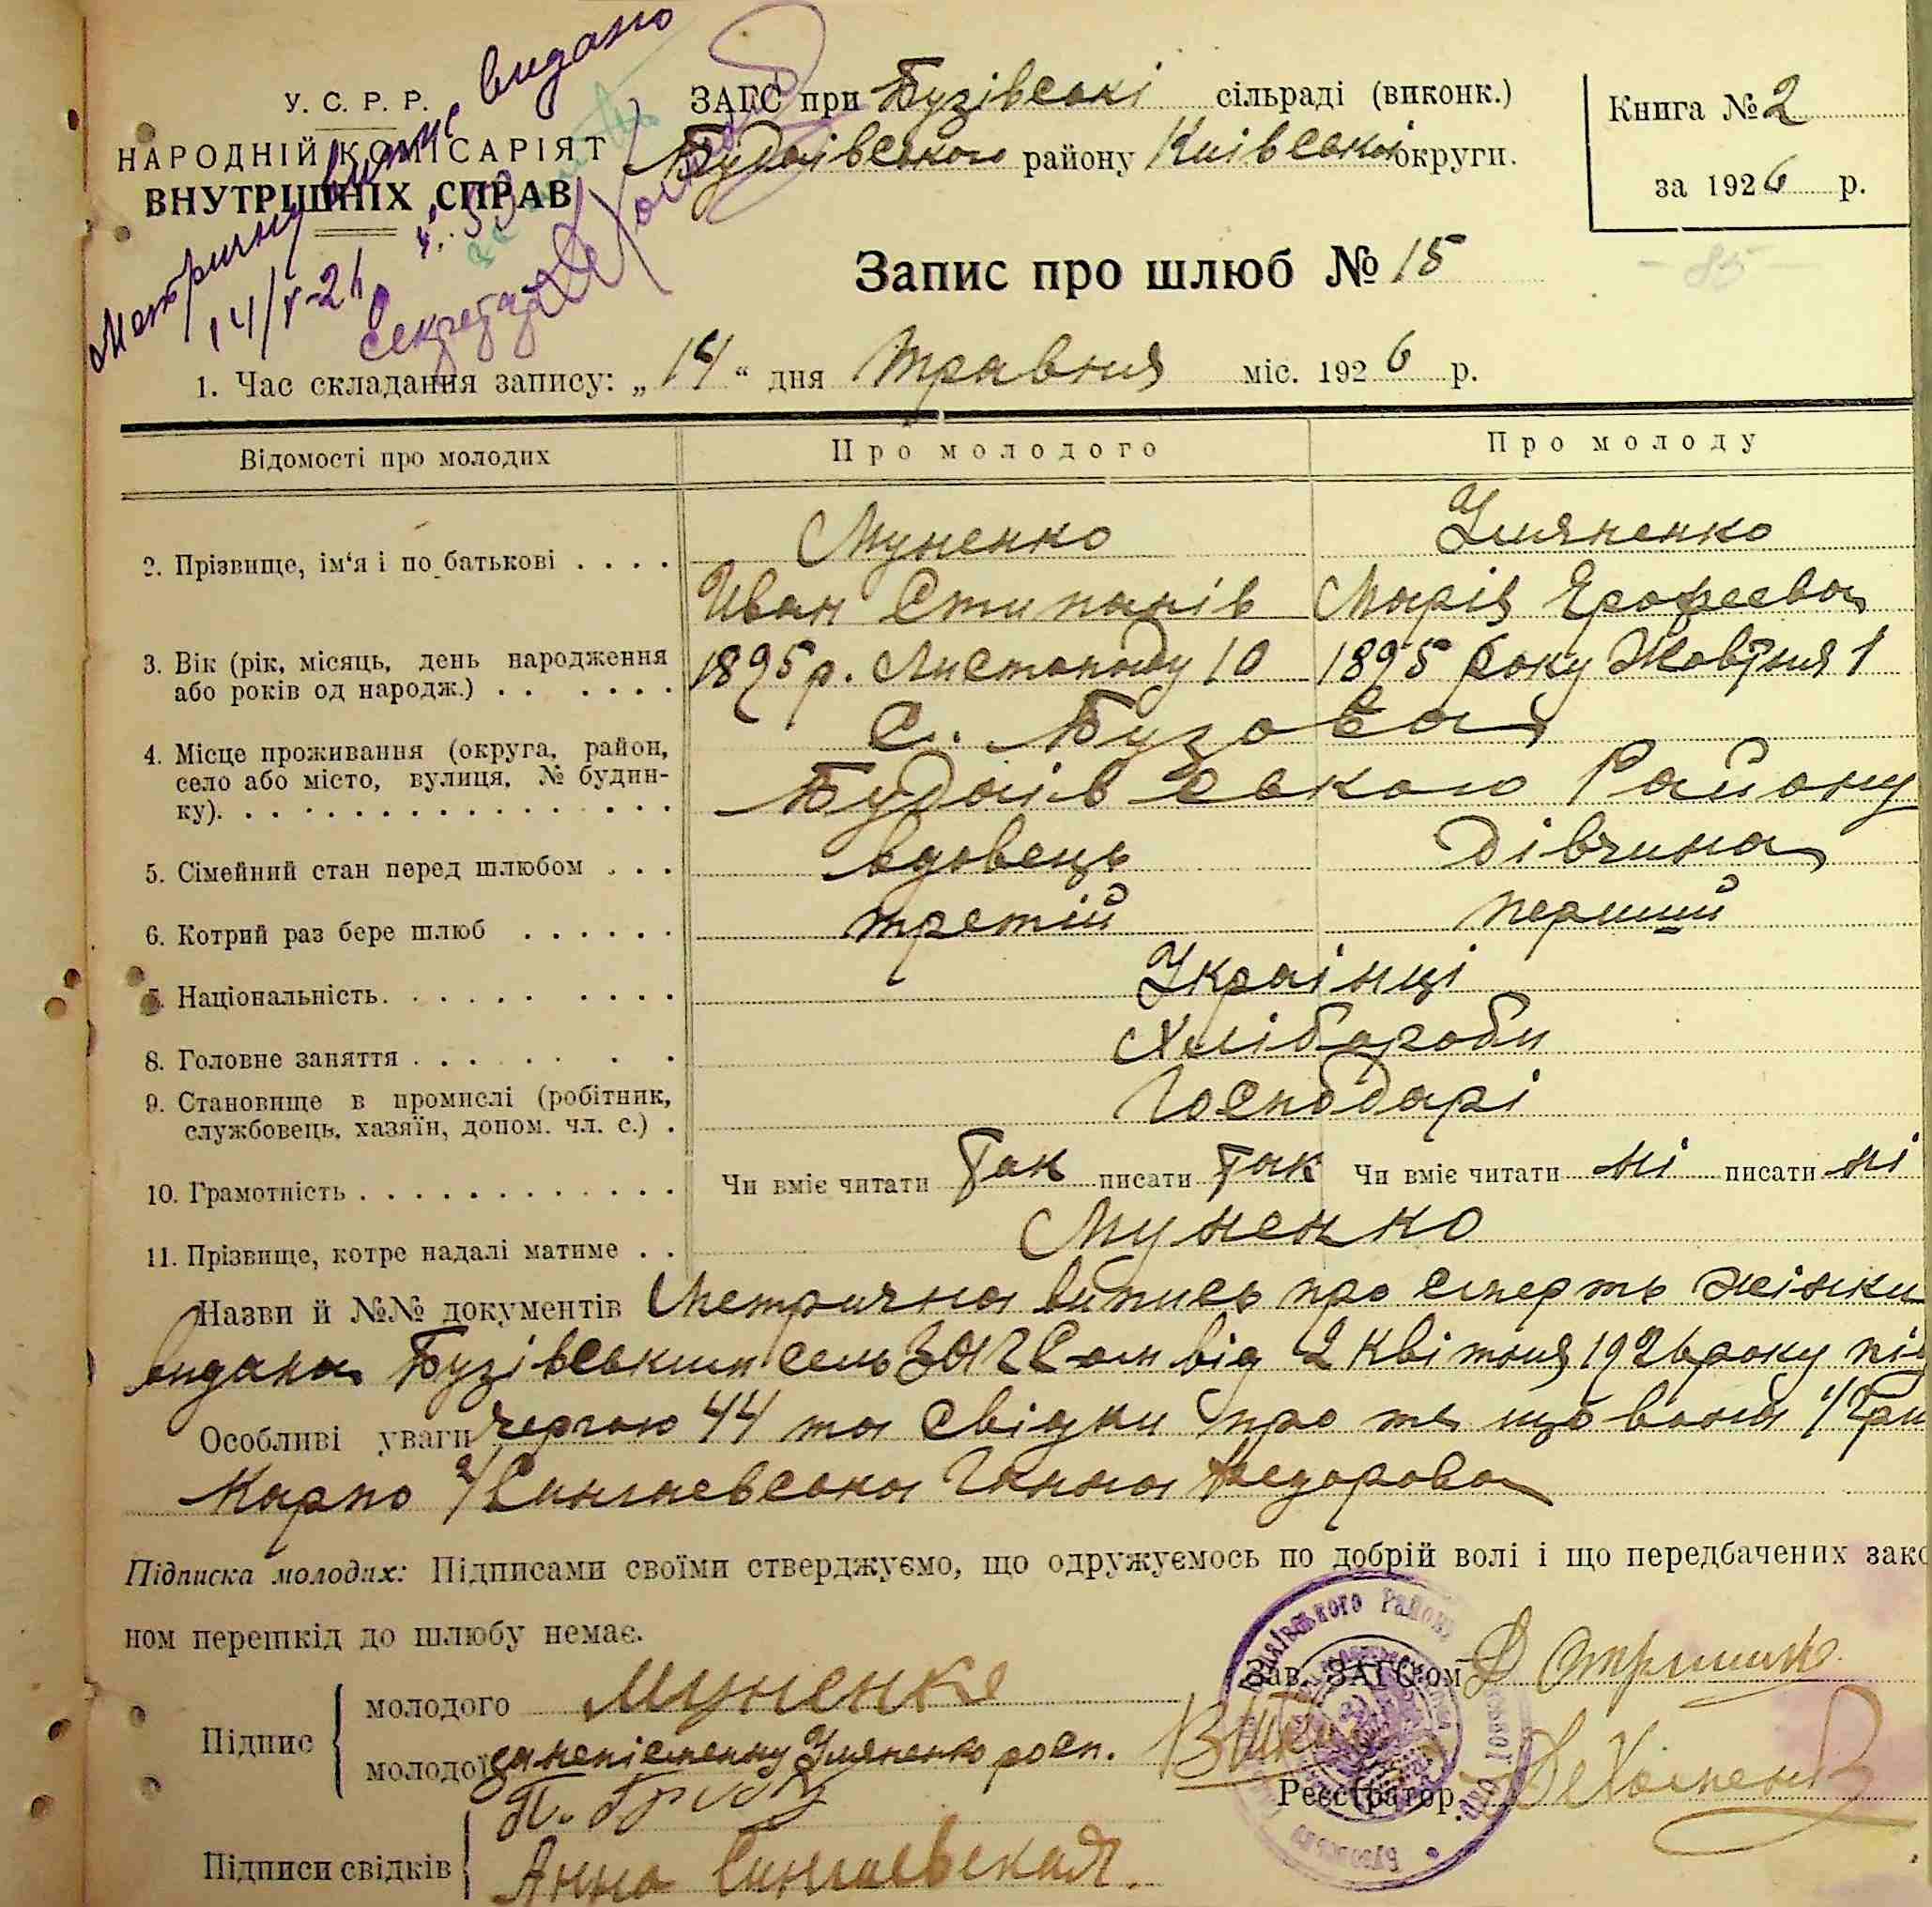 Метричну випис видано
14/V-26 ч. 59
Секретар
У. С. Р. Р.
НАРОДНІЙ КОМІСАРІЯТ
ВНУТРІШНІХ СПРАВ
ЗАГС при Бузівські сільраді (виконк.)
Будаівського району Киівськоі округи.
Книга № 2
за 1926 р.
Запис про шлюб № 15
- 85 -
1. Час складання запису: „14“ дня травня міс. 1926 р.
Відомості про молодих Про молодого Про молоду
2. Прізвище, ім'я і по батькові . . . . Муненко Умяненко
Иван Стипанів Марія Ерофеева
3. Вік (рік, місяць, день народження 1895 р. Листопаду 10 1895 року Жовтня 1
або років од народж.) . . . . . .
4. Місце проживання (округа, район, с. Бузова
село або місто, вулиця, № будин- Будаівського Району
ку). . . . . . . . . . . . . . . .
5. Сімейний стан перед шлюбом . . . вдовець дівчина
6. Котрий раз бере шлюб . . . . . . третій перший
7. Національність. . . . . . . . . . Украінці
8. Головне заняття . . . . . . . . Хлібороби
9. Становище в промислі (робітник, Господарі
службовець, хазяїн, допом. чл. с.) .
10. Грамотність . . . . . . . . . . . . . Чи вміє читати Так писати Так Чи вміє читати ні писати ні
11. Прізвище, котре надалі матиме . . Муненко
Назви й №№ документів Метрична випись про смерть жінки
видана Бузівським сель ЗАГСом від 2 квітня 1926 року під
Особливі уваги чергою 44 та свідки про те що вони 1/
Карпо 2/ Сингаевська Ганна Федорова
Підписка молодих: Підписами своїми стверджуємо, що одружуємось по добрій волі і що передбачених зако
ном перешкід до шлюбу немає.
Зав. ЗАГСом
Підпис молодого Муненко
молодої за неписменну Умяненко росп.
Реєстратор.
Підписи свідків
Анна Сингаевская.